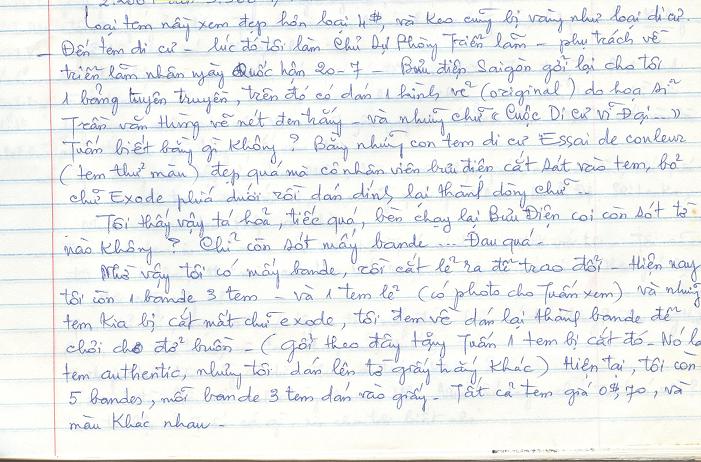 Loại tem này xem đẹp hơn loại 4$, và keo cũng bị vàng như loại di cư.
- Đến tem di cư - lúc đó tôi làm Chủ Sự Phòng Triển lãm - phụ trách về
triển lãm nhân ngày Quốc hận 20-7 - Bưu điện Saigon gởi lại cho tôi
1 bảng tuyên truyền, trên đó có dán 1 hình vẽ (original) do họa sĩ
Trần văn Thừng vẽ nét đen trắng - và những chữ "Cuộc Di cư vĩ Đại..."
Tuấn biết bằng gì không ? Bằng những con tem di cư Essai de couleur
(tem thử màu) đẹp quá mà cô nhân viên bưu điện cắt sát vào tem, bỏ
chữ Exode phía dưới rồi dán dính lại thành dòng chữ ...
Tôi thấy vậy tá hỏa, tiếc quá, bèn chạy lại Bưu Điện coi còn sót tờ
nào không ? Chỉ còn sót mấy bande ... Đau quá -
Nhờ vậy tôi có mấy bande, rồi cắt lẻ ra để trao đổi - Hiện nay
tôi còn 1 bande 3 tem - và 1 tem lẻ (có photo cho Tuấn xem) và những
tem kia bị cắt mất chữ exode, tôi đem về dán lại thành bande để
chơi cho đỡ buồn - (gởi theo đây tặng Tuấn 1 tem bị cắt đó - Nó là
tem authentic, nhưng tôi dán lên tờ giấy trắng khác) Hiện tại, tôi còn
5 bandes, mỗi bande 3 tem dán vào giấy - Tất cả tem giá 0$,70, và
màu khác nhau -